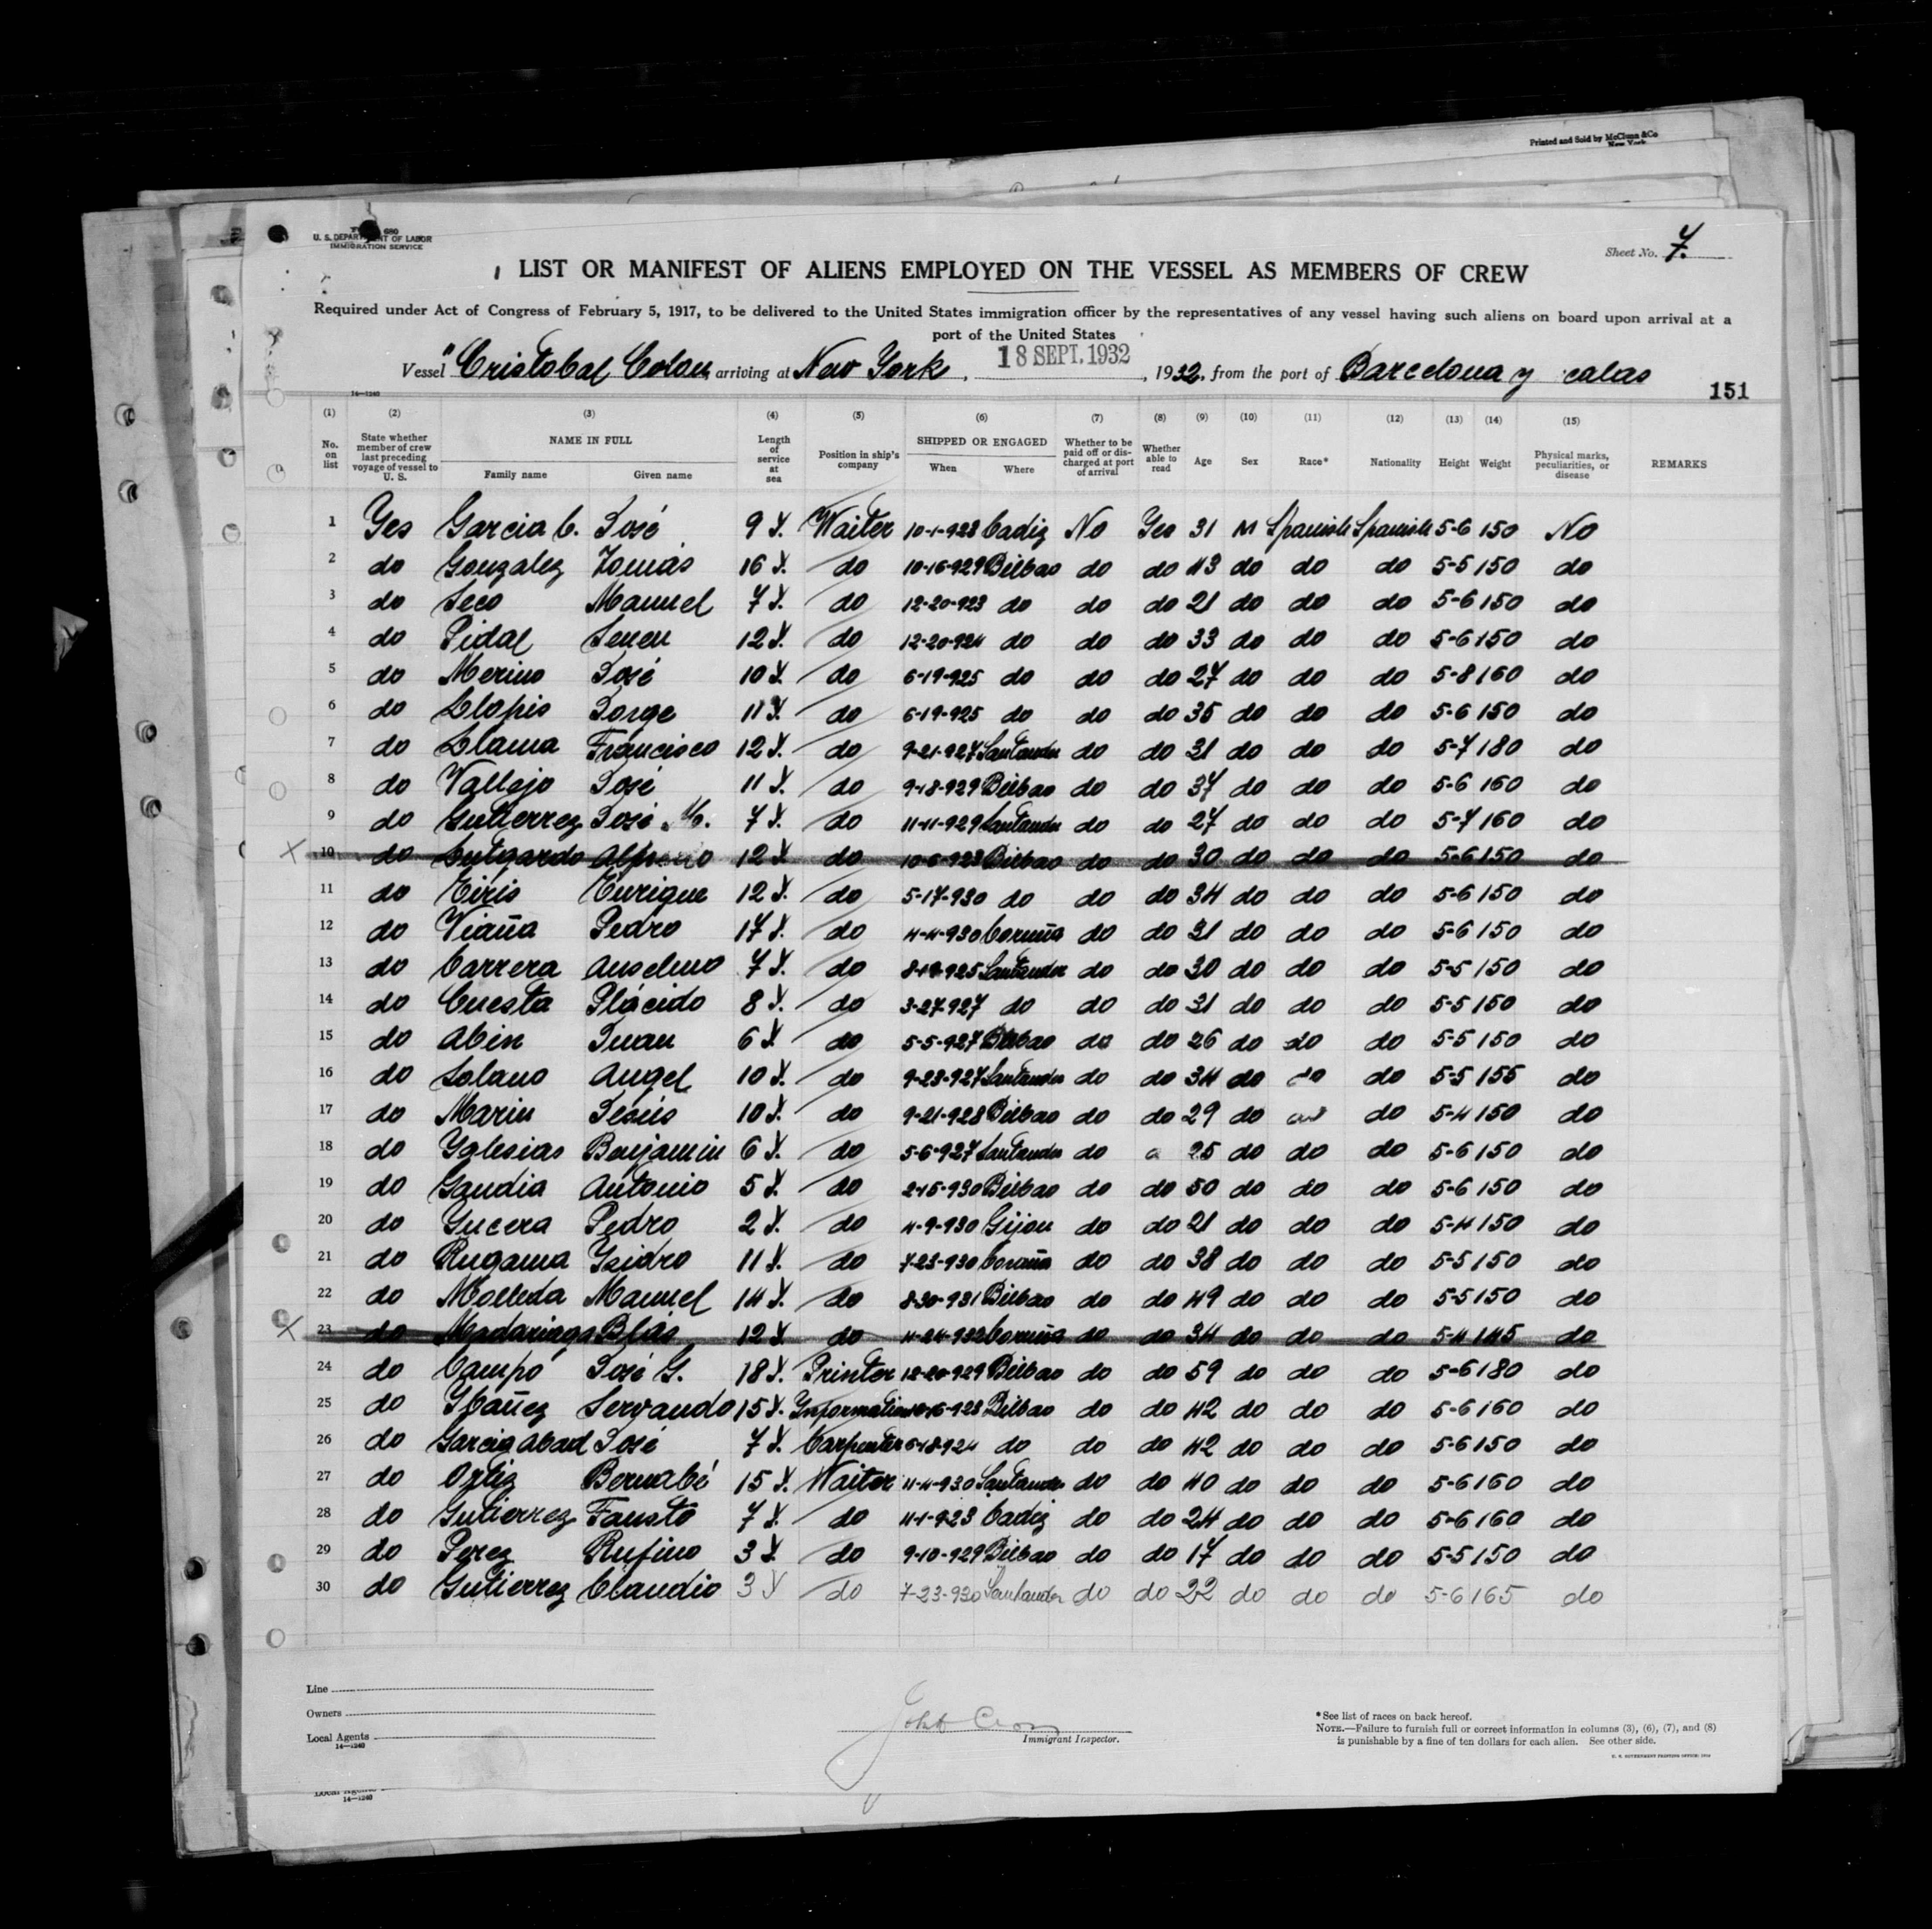 Printed and Sold by McClunn & Co
New York
680
U. S. DEPARTMENT OF LABOR
IMMIGRATION SERVICE
Sheet No. 7.
LIST OR MANIFEST OF ALIENS EMPLOYED ON THE VESSEL AS MEMBERS OF CREW
Required under Act of Congress of February 5, 1917, to be delivered to the United States immigration officer by the representatives of any vessel having such aliens on board upon arrival at a
port of the United States
Vessel "Cristobal Colon, arriving at New York, 18 SEPT. 1932, 1932, from the port of Barcelona y calas
14—1240
151
(1) (2) (3) (4) (5) (6) (7) (8) (9) (10) (11) (12) (13) (14) (15)
No. on list State whether member of crew last preceding voyage of vessel to U. S. NAME IN FULL Family name Given name Length of service at sea Position in ship's company SHIPPED OR ENGAGED When Where Whether to be paid off or discharged at port of arrival Whether able to read Age Sex Race* Nationality Height Weight Physical marks, peculiarities, or disease REMARKS
1 Yes Garcia C. José 9 Y. Waiter 10-1-923 Cadiz No Yes 31 M Spanish Spanish 5-6 150 No
2 do Gonzalez Tomás 16 Y. do 10-16-929 Bilbao do do 43 do do do 5-5 150 do
3 do Seco Manuel 7 Y. do 12-20-923 do do do 21 do do do 5-6 150 do
4 do Pidal Senen 12 Y. do 12-20-924 do do do 33 do do do 5-6 150 do
5 do Merino José 10 Y. do 6-19-925 do do do 27 do do do 5-8 160 do
6 do Llopis Jorge 11 Y. do 6-19-925 do do do 35 do do do 5-6 150 do
7 do Llama Francisco 12 Y. do 9-21-927 Santander do do 31 do do do 5-7 180 do
8 do Vallejo José 11 Y. do 9-18-929 Bilbao do do 37 do do do 5-6 160 do
9 do Gutierrez José M. 7 Y. do 11-11-929 Santander do do 27 do do do 5-7 160 do
X 10 do Lutgardo Alfredo 12 Y. do 10-6-923 Bilbao do do 30 do do do 5-6 150 do
11 do Eiris Enrique 12 Y. do 5-17-930 do do do 34 do do do 5-6 150 do
12 do Viaña Pedro 17 Y. do 4-4-930 Coruña do do 31 do do do 5-6 150 do
13 do Carrera Anselmo 7 Y. do 8-19-925 Santander do do 30 do do do 5-5 150 do
14 do Cuesta Plácido 8 Y. do 3-27-927 do do do 31 do do do 5-5 150 do
15 do Abin Juan 6 Y. do 5-5-927 Bilbao do do 26 do do do 5-5 150 do
16 do Solano Angel 10 Y. do 9-23-927 Santander do do 34 do do do 5-5 155 do
17 do Marin Jesús 10 Y. do 9-21-928 Bilbao do do 29 do do do 5-4 150 do
18 do Yglesias Benjamin 6 Y. do 5-6-927 Santander do 25 do do do 5-6 150 do
19 do Gandia Antonio 5 Y. do 2-15-930 Bilbao do do 50 do do do 5-6 150 do
20 do Yucera Pedro 2 Y. do 4-9-930 Gijon do do 21 do do do 5-4 150 do
21 do Rugama Ysidro 11 Y. do 7-23-930 Coruña do do 38 do do do 5-5 150 do
22 do Molleda Manuel 14 Y. do 8-30-931 Bilbao do do 49 do do do 5-5 150 do
X 23 do Madariaga Blas 12 Y. do 4-24-932 Coruña do do 34 do do do 5-4 145 do
24 do Campo José G. 18 Y. Printer 12-20-929 Bilbao do do 59 do do do 5-6 180 do
25 do Ybañez Servando 15 Y. Information 10-16-923 Bilbao do do 42 do do do 5-6 160 do
26 do Garcia Abad José 7 Y. Carpenter 6-18-924 do do do 42 do do do 5-6 150 do
27 do Ortiz Bernabé 15 Y. Waiter 11-4-930 Santander do do 40 do do do 5-6 160 do
28 do Gutierrez Fausto 7 Y. do 4-1-923 Cadiz do do 24 do do do 5-6 160 do
29 do Perez Rufino 3 Y. do 9-10-929 Bilbao do do 17 do do do 5-5 150 do
30 do Gutierrez Claudio 3 Y do 7-23-930 Santander do do 22 do do do 5-6 165 do
Line
Owners
Local Agents
14—1240
Immigrant Inspector.
*See list of races on back hereof.
NOTE.—Failure to furnish full or correct information in columns (3), (6), (7), and (8)
is punishable by a fine of ten dollars for each alien. See other side.
Local Agents
14—1240